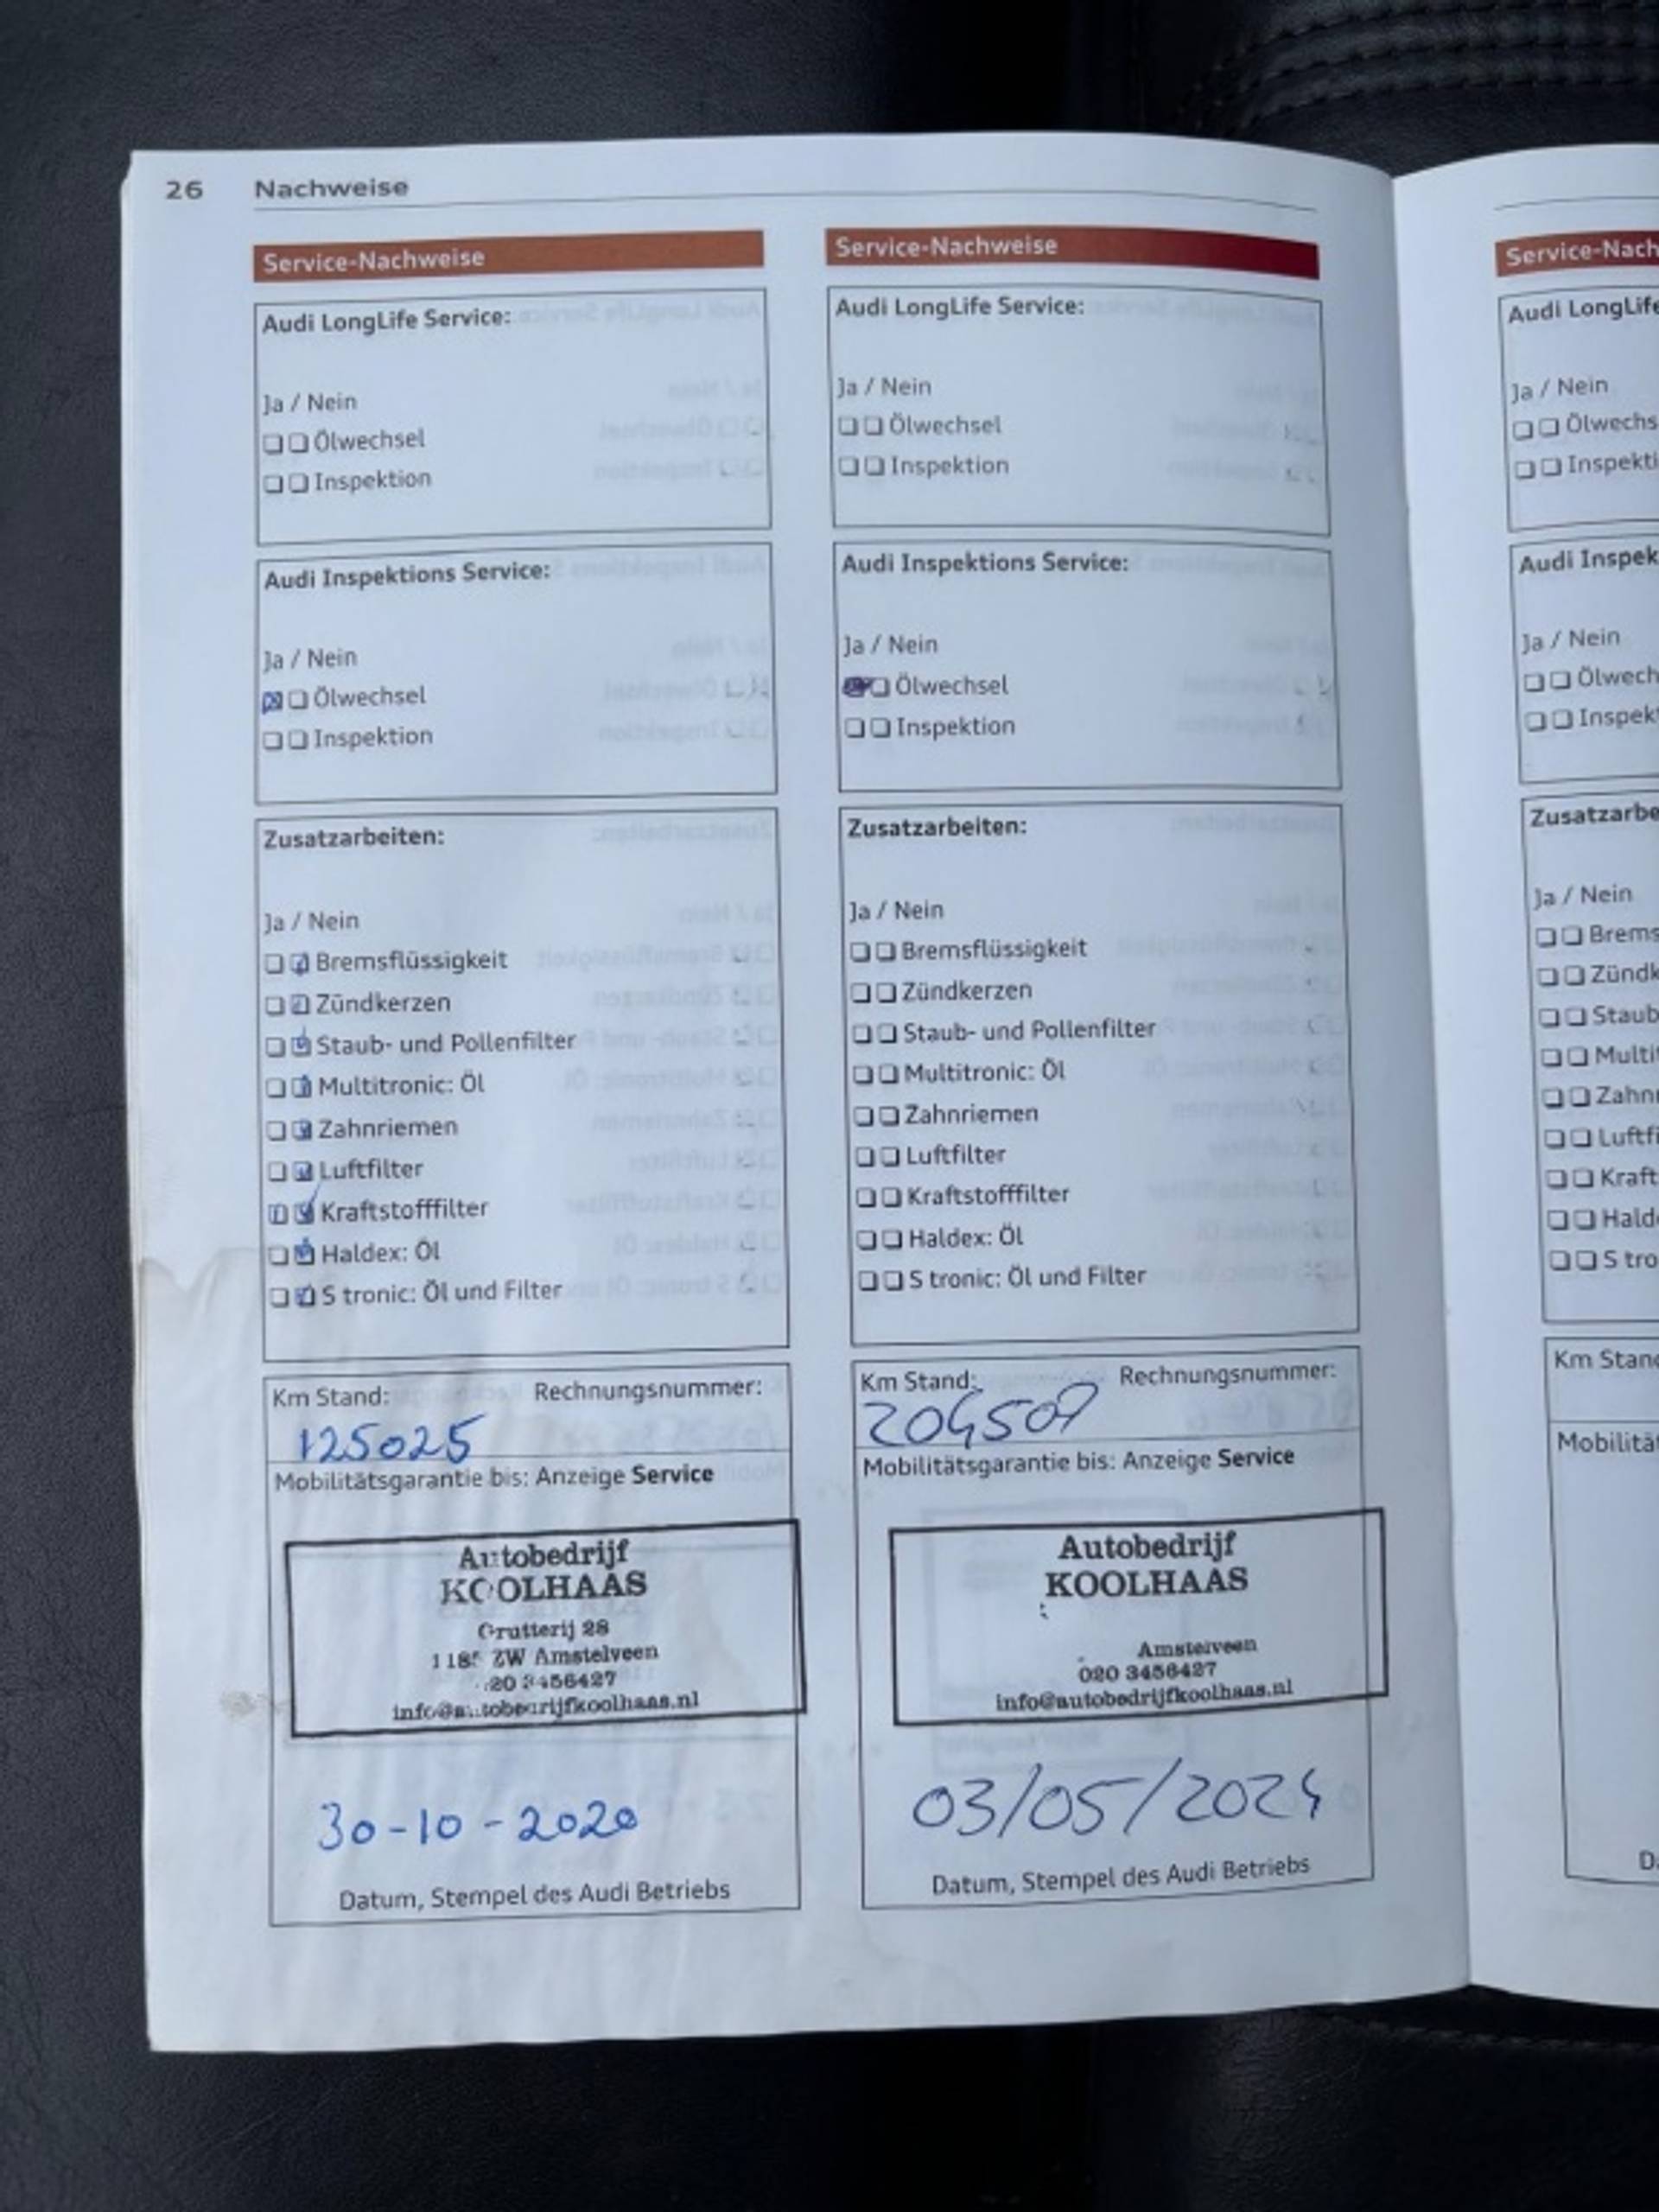 26 Nachweise
Service-Nachweise
Audi LongLife Service:
Ja / Nein
Ölwechsel
Inspektion
Audi Inspektions Service:
Ja / Nein
Ölwechsel
Inspektion
Zusatzarbeiten:
Ja / Nein
Bremsflüssigkeit
Zündkerzen
Staub- und Pollenfilter
Multitronic: Öl
Zahnriemen
Luftfilter
Kraftstofffilter
Haldex: Öl
S tronic: Öl und Filter
Km Stand: Rechnungsnummer:
125025
Mobilitätsgarantie bis: Anzeige Service
Autobedrijf
KOOLHAAS
Grutterij 28
ZW Amstelveen
20 3456427
info@autobedrijfkoolhaas.nl
30-10-2020
Datum, Stempel des Audi Betriebs
Service-Nachweise
Audi LongLife Service:
Ja / Nein
Ölwechsel
Inspektion
Audi Inspektions Service:
Ja / Nein
Ölwechsel
Inspektion
Zusatzarbeiten:
Ja / Nein
Bremsflüssigkeit
Zündkerzen
Staub- und Pollenfilter
Multitronic: Öl
Zahnriemen
Luftfilter
Kraftstofffilter
Haldex: Öl
S tronic: Öl und Filter
Km Stand: Rechnungsnummer:
204507
Mobilitätsgarantie bis: Anzeige Service
Autobedrijf
KOOLHAAS
Amstelveen
020 3456427
info@autobedrijfkoolhaas.nl
03/05/2024
Datum, Stempel des Audi Betriebs
Service-Nach
Audi LongLife
Ja / Nein
Ölwechs
Inspekti
Audi Inspek
Ja / Nein
Ölwech
Inspekt
Zusatzarbe
Ja / Nein
Brems
Zündk
Staub
Multit
Zahnr
Luftfi
Kraft
Halde
S tro
Km Stand
Mobilität
Da